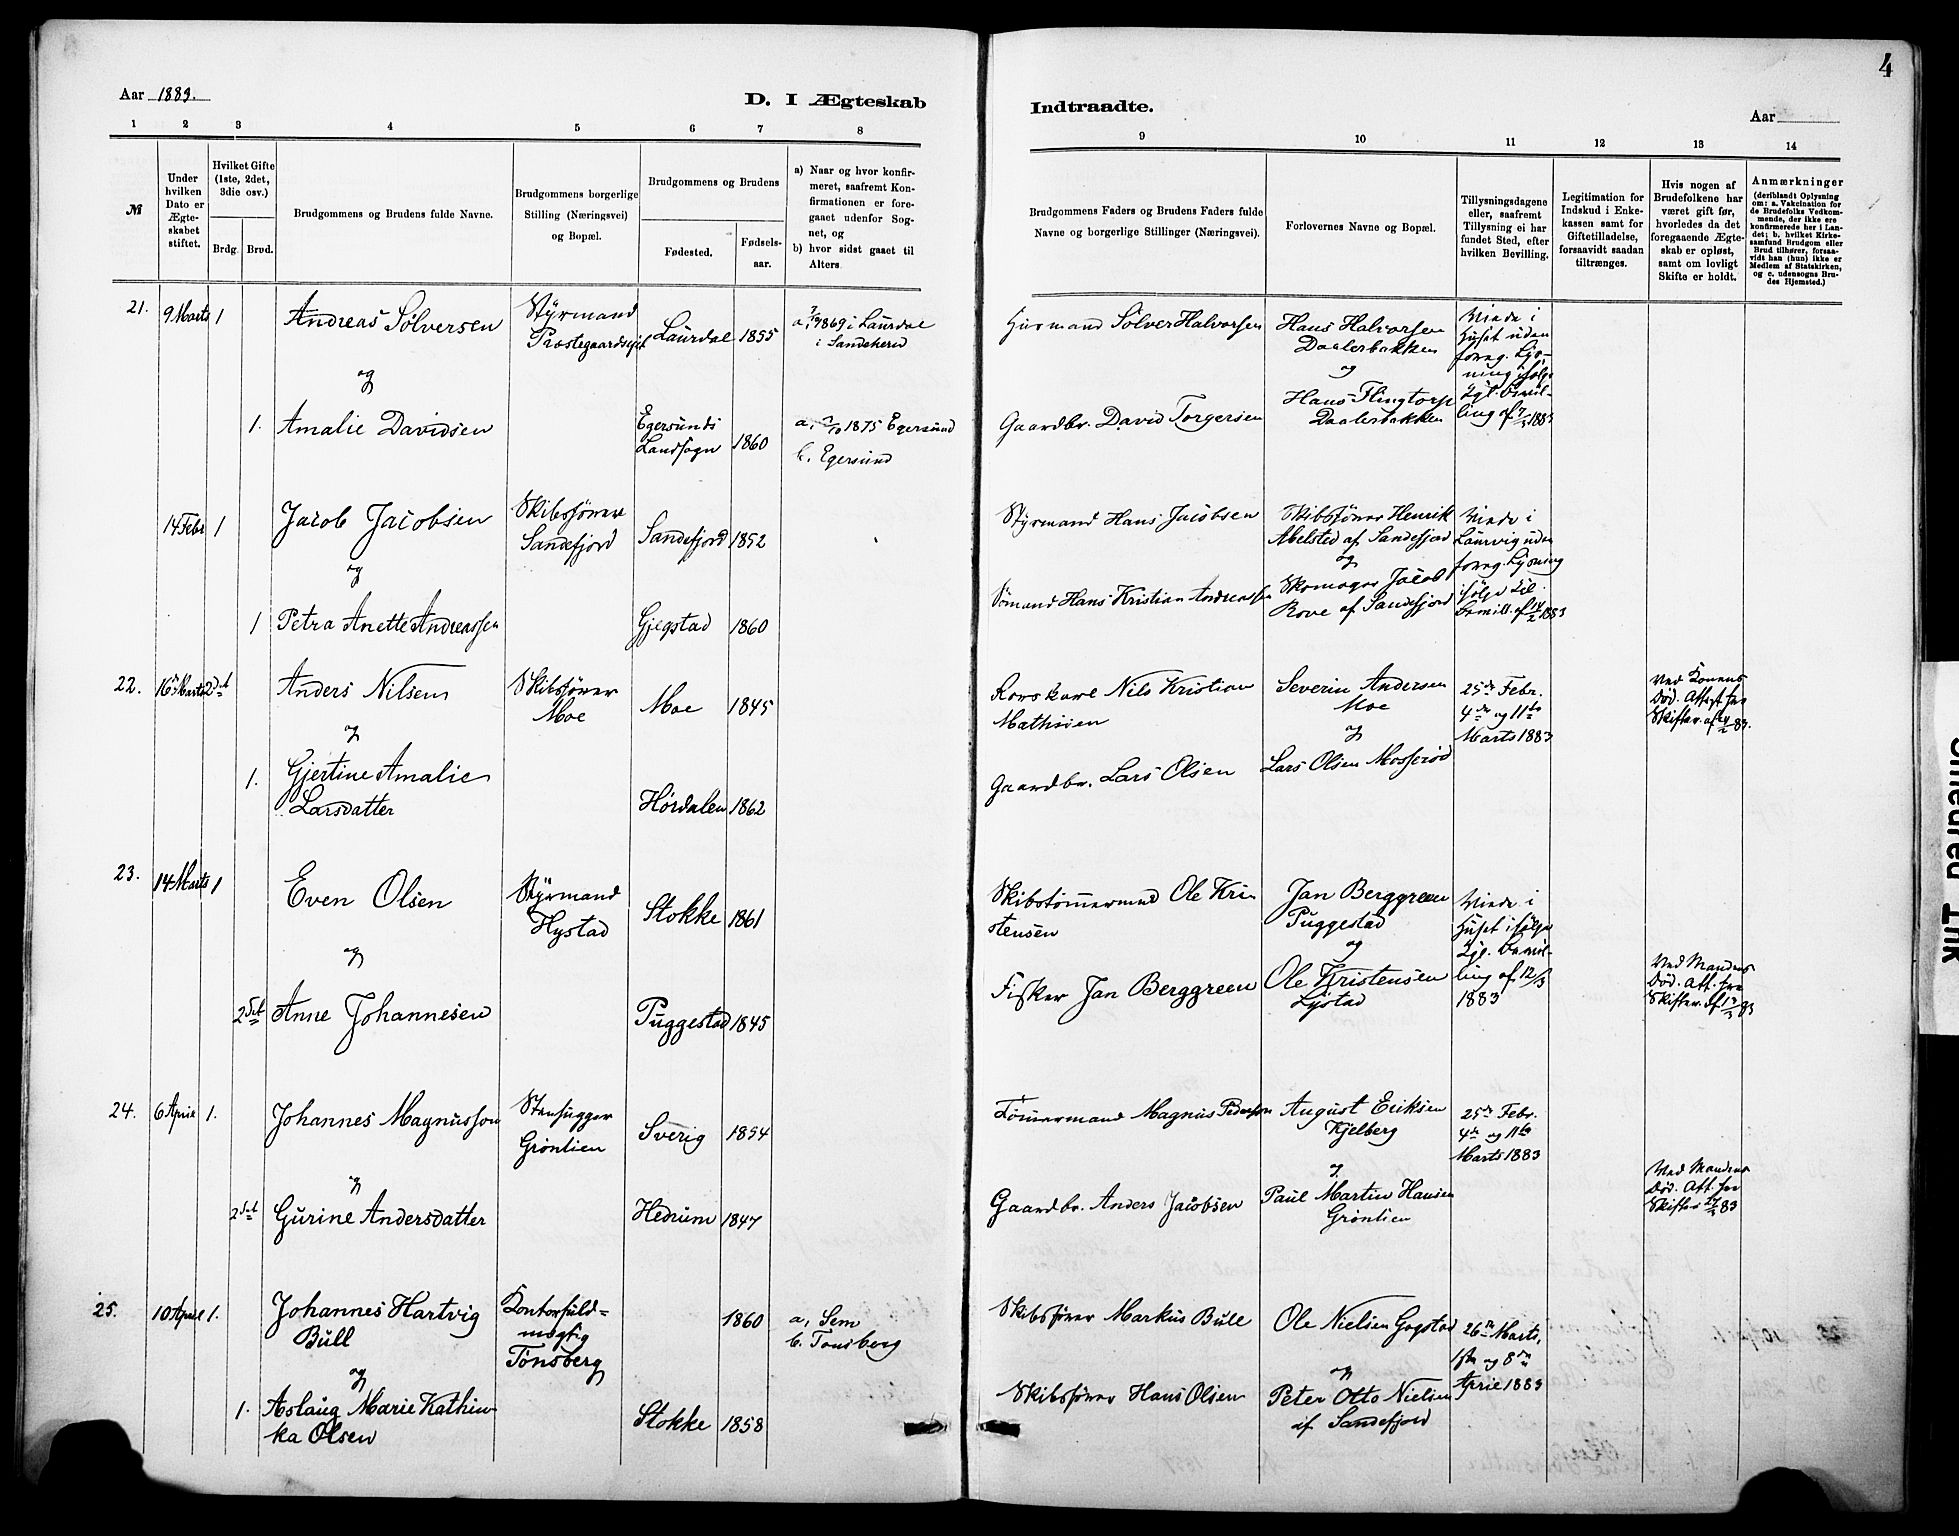 Aar 1883.
D. I Ægteskab
Indtraadte.
Aar
4
1 2 3 4 5 6 7 8
9 10 11 12 13 14
№
Under hvilken Dato er Ægteskabet stiftet.
Hvilket Gifte (1ste, 2det, 3die osv.)
Brdg. Brud.
Brudgommens og Brudens fulde Navne.
Brudgommens borgerlige Stilling (Næringsvei) og Bopæl.
Brudgommens og Brudens
Fødested.
Fødselsaar.
a) Naar og hvor konfirmeret, saafremt Konfirmationen er foregaaet udenfor Sognet, og
b) hvor sidst gaaet til Alters.
Brudgommens Faders og Brudens Faders fulde Navne og borgerlige Stillinger (Næringsvei).
Forlovernes Navne og Bopæl.
Tillysningsdagene eller, saafremt Tillysning ei har fundet Sted, efter hvilken Bevilling.
Legitimation for Indskud i Enkekassen samt for Giftetilladelse, forsaavidt saadan tiltrænges.
Hvis nogen af Brudefolkene har været gift før, hvorledes da det foregaaende Ægteskab er opløst, samt om lovligt Skifte er holdt.
Anmærkninger (deriblandt Oplysning om: a. Vakcination for de Brudefolks Vedkommende, der ikke ere konfirmerede her i Landet; b. hvilket Kirkesamfund Brudgom eller Brud tilhører, forsaavidt han (hun) ikke er Medlem af Statskirken, og c. udensogns Brudes Hjemsted.)
21. 9 Marts 1 Andreas Sølversen
Styrmand
Laurdal 1855
1869 i Laurdal
i Sandeherd
Husmand Sølver Halvorsen
Hans Halvorsen
Daalerbakken
og
Hans Flingtorp
Daalerbakken
Viede i
Huset uden
foreg. Lysning
ifølge
Lgl. Bevilling
af 7/3 1883
og
1. Amalie Davidsen
Egersunds
Landsogn 1860
1875 Egersund
b. Egersund
Gaardbr. David Torgersen
14 Febr 1 Jacob Jacobsen
Skibsfører
Sandefjord
Sandefjord 1852
Styrmand Hans Jacobsen
Skibsfører Henrik
Abelsted af Sandefjord
og
Skomager Jacob
Rove af Sandefjord
Viede i
Laurvig uden
foreg. Lysning
ifølge Lgl.
Bevill. af 14/2 1883
og
1 Petra Anette Andreassen
Gjegstad 1860
Sømand Hans Kristian Andreassen
22. 16 Marts 2det Anders Nilsen
Skibsfører
Moe
Moe 1845
Nils Kristian
Mathisen
Severin Andersen
Moe
og
Lars Olsen Mosserød
25de Febr.
4de og 11te
Marts 1883
Ved Konens
Død. Attest fra
Skifter. af 24/2 83.
og
1. Gjertine Amalie
Larsdatter
Hørdalen 1862
Gaardbr. Lars Olsen
23. 14 Marts 1 Even Olsen
Styrmand
Hystad
Stokke 1861
Skibstømmermand Ole Kristensen
Jan Berggreen
Puggestad
og
Ole Kristensen
Viede i
Huset ifølge
Lgl. Bevilling
af 12/3
1883
og
2det Anne Johannesen
Puggestad 1845
Fisker Jan Berggreen
Ved Mandens
Død. Att. fra
Skifter. af
24. 6 April 1. Johannes Magnusson
Stenhugger
Grønlien
Sverig 1854
Tømmermand Magnus Pederson
August Eriksen
Kjelberg
og
Paul Martin Hansen
Grønlien
25de Febr.
4de og 11te
Marts 1883
og
2det Gurine Andersdatter
Hedrum 1847
Gaardbr. Anders Jacobsen
Ved Mandens
Død. Att. fra
Skifter 83
25. 10 April 1. Johannes Hartvig
Bull
Kontorfuldmægtig
Tønsberg
1860
a, Sem
b. Tønsberg
Skibsfører Markus Bull
Ole Nielsen Gogstad
og
Peter Otto Nielsen
af Sandefjord
26de Marts,
1ste og 8de
April 1883
og
1. Aslaug Marie Kathinka
Olsen
Stokke 1858
Skibsfører Hans Olsen
Smeared Ink